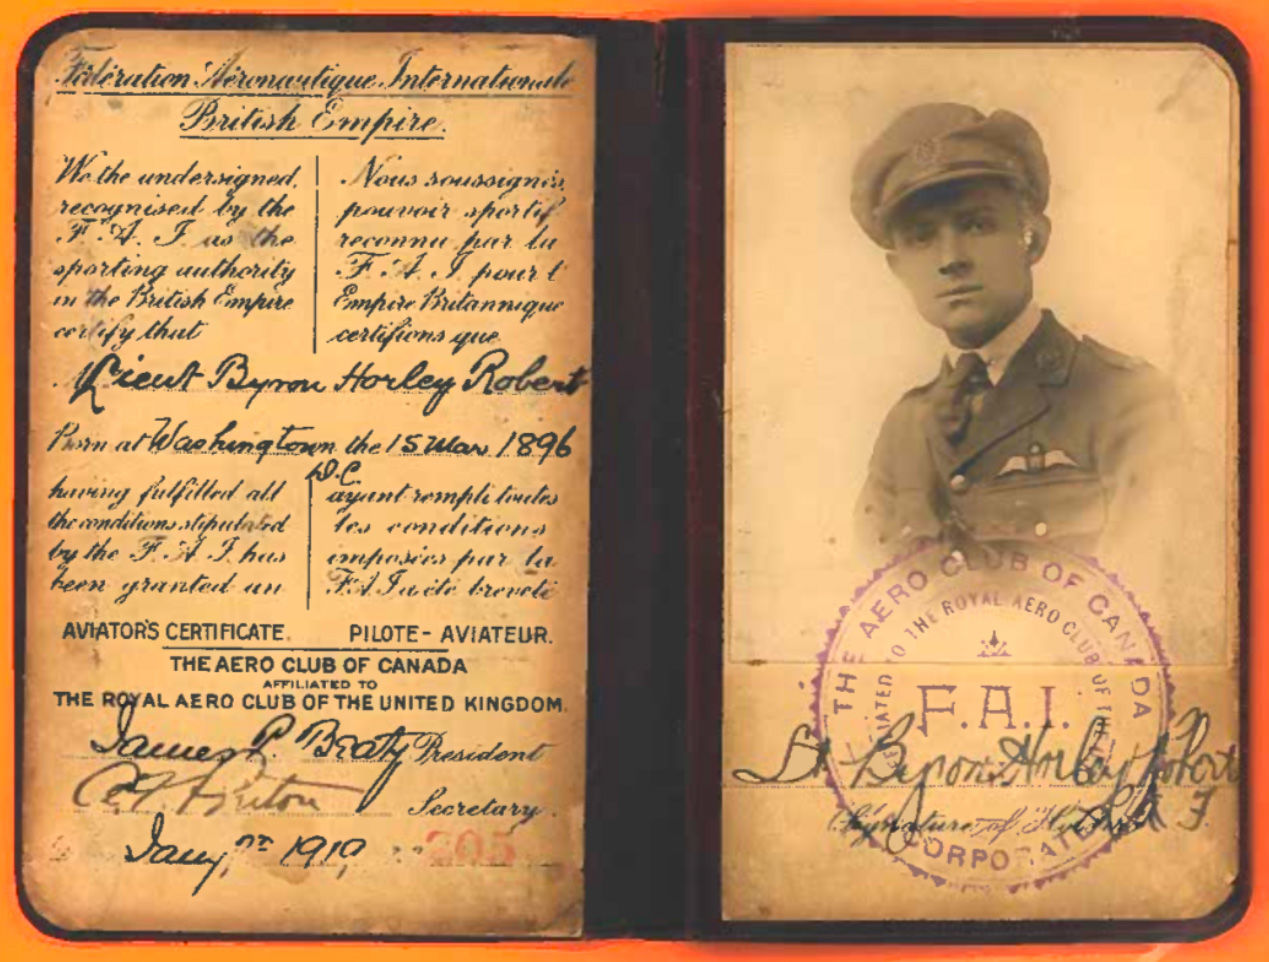 Fédération Aéronautique Internationale
British Empire.
We the undersigned,
recognised by the
F. A. I as the
sporting authority
in the British Empire
certify that
Nous soussignés,
pouvoir sportif
reconnu par la
F. A. I pour l
Empire Britannique
certifions que
Lieut Byron Horley Robert
Born at Washington the 15 Mar 1896
D.C.
having fulfilled all
the conditions stipulated
by the F. A. I. has
been granted an
ayant rempli toutes
les conditions
imposées par la
F.A.I a été breveté
AVIATOR'S CERTIFICATE. PILOTE-AVIATEUR.
THE AERO CLUB OF CANADA
AFFILIATED TO
THE ROYAL AERO CLUB OF THE UNITED KINGDOM.
James P. Beaty President
Secretary.
Jany, 1919 205
THE AERO CLUB OF CANADA
TO THE ROYAL AERO CLUB OF THE
F.A.I.
Lt Byron Horley Robert
Signature of